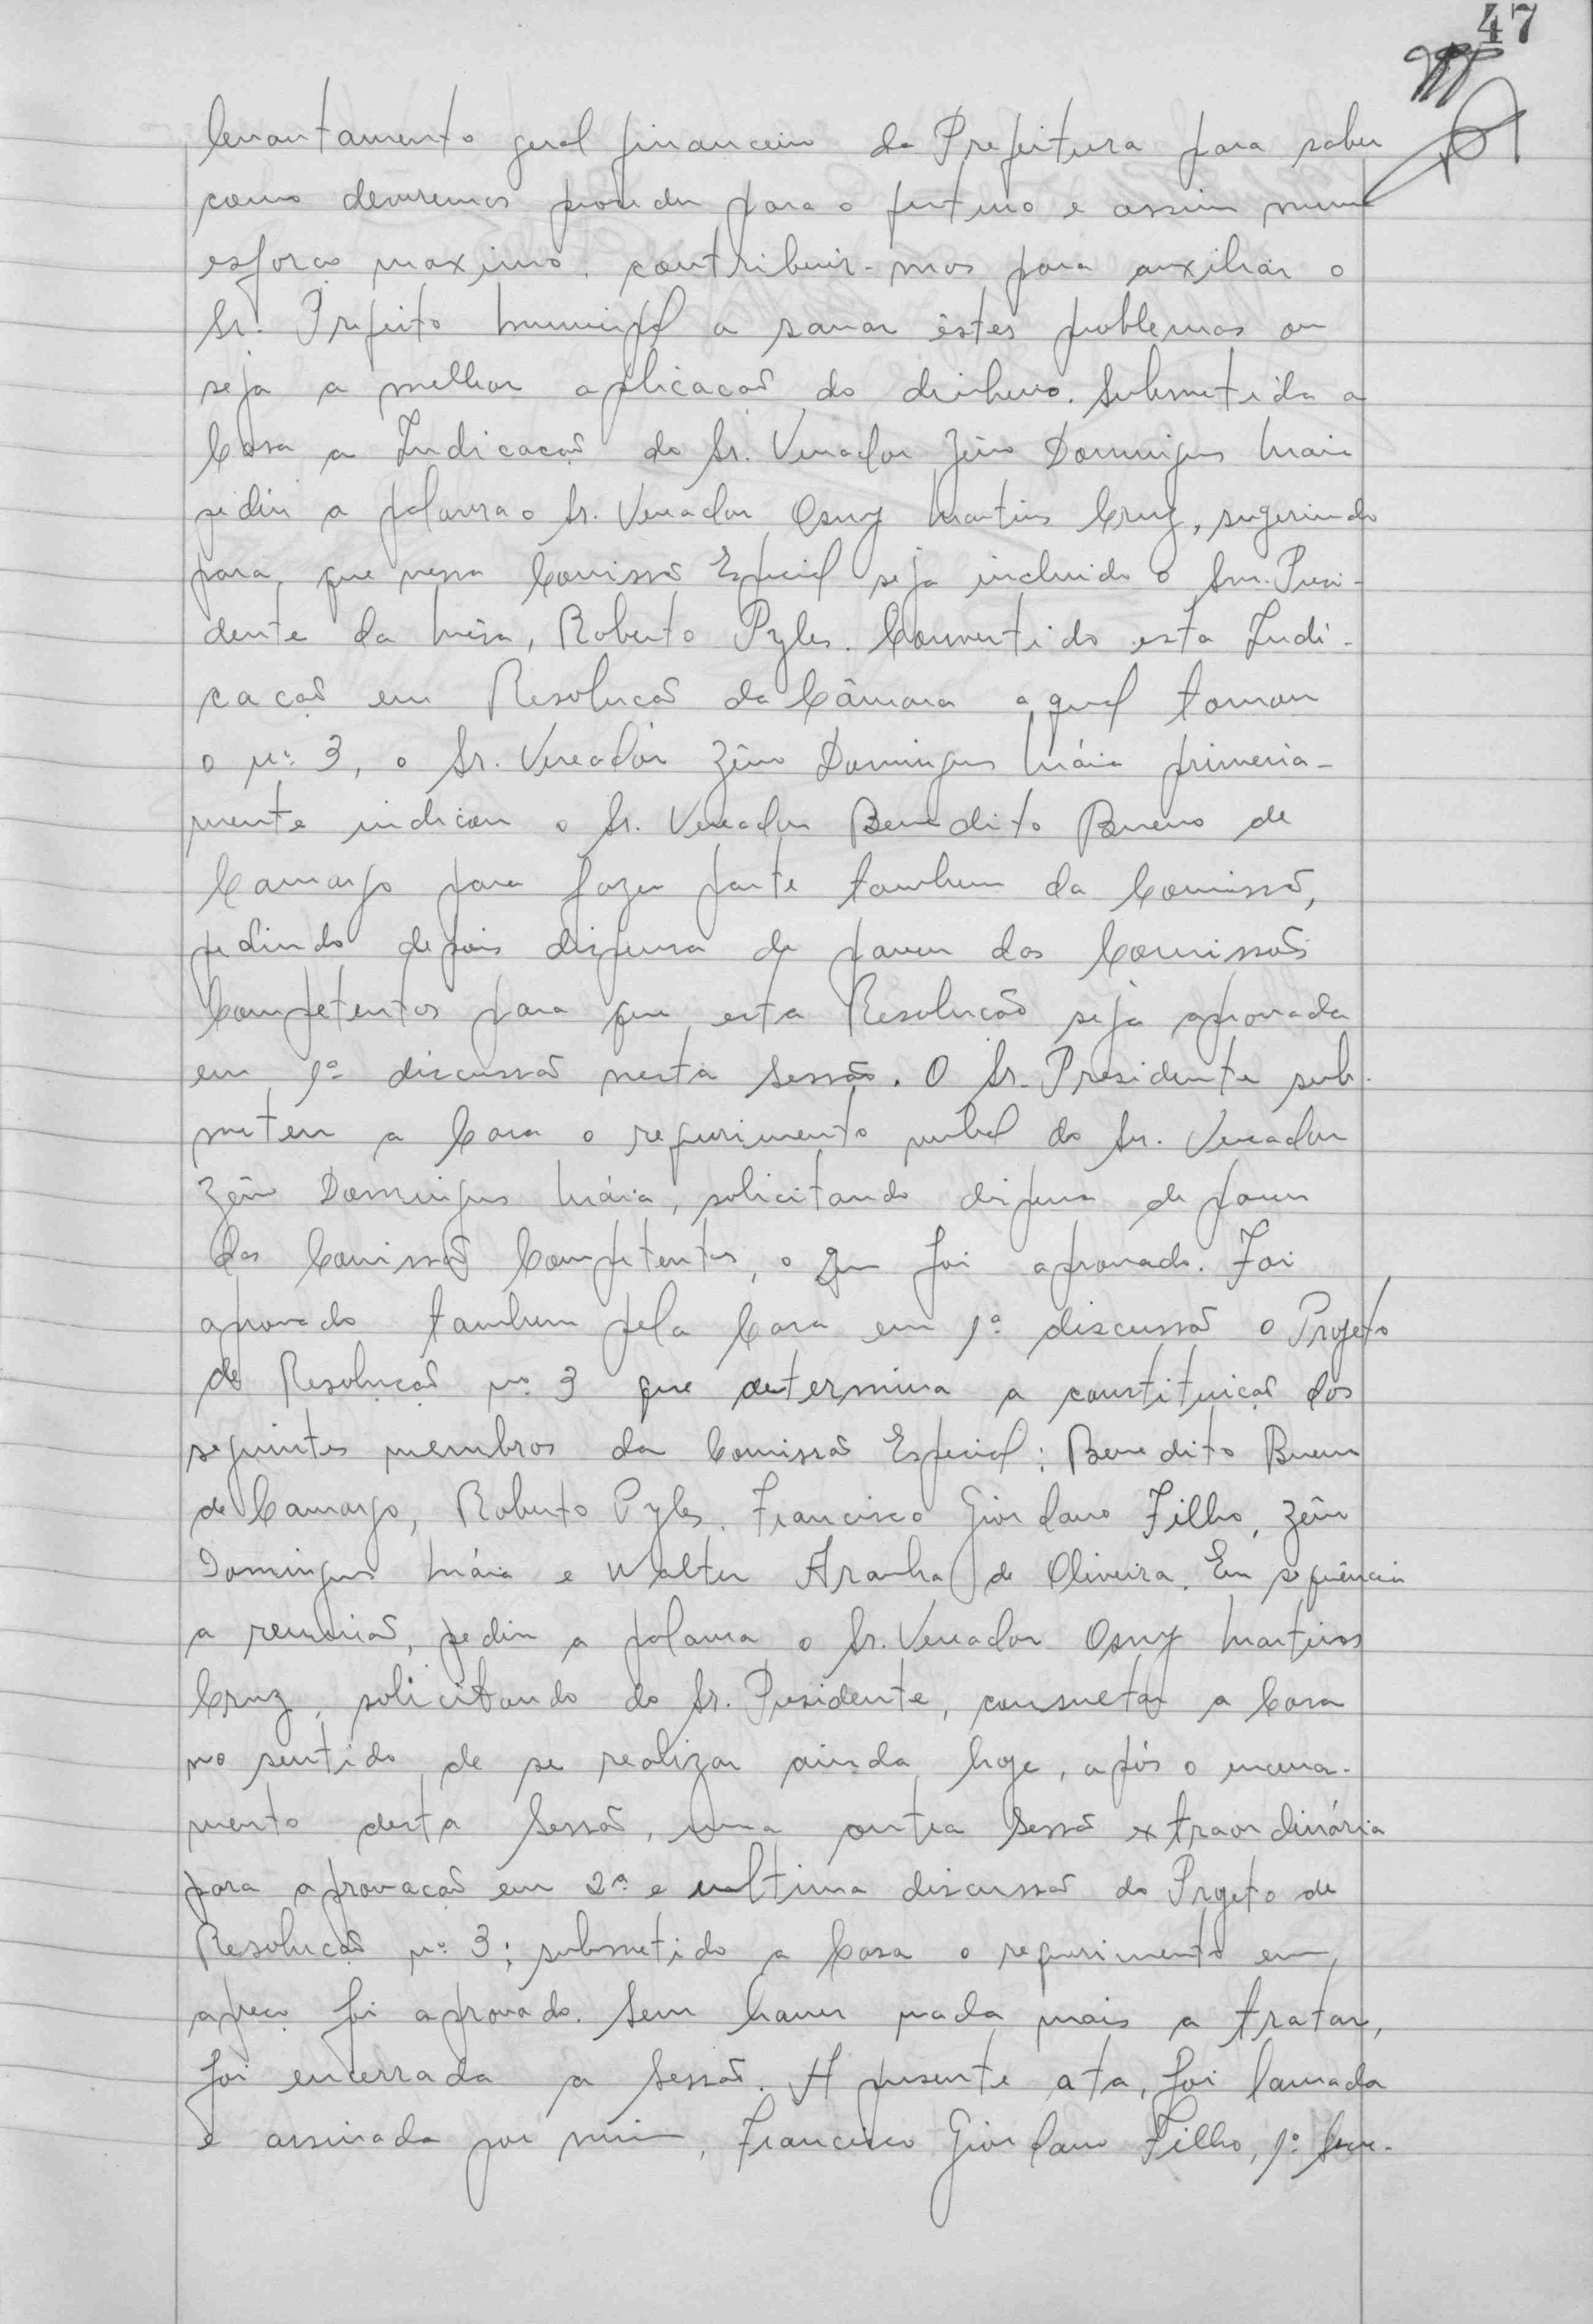 47
levantamento geral financeiro da Prefeitura para saber
como devemos proceder para o futuro e assim num
esforço maximo. contribuir-mos para auxiliar o
Sr. Prefeito Municipal a sanar êstes problemas ou
seja a melhor aplicação do dinheiro. Submetida a
Casa a Indicação do Sr. Vereador Zêno Domingues Maia
pediu a palavra o Sr. Vereador Osny Martins Cruz, sugerindo
para, que nessa Comissão Especial seja incluido o Snr. Presi-
dente da Mêsa, Roberto Pyles. Convertido esta Indi-
cação em Resolução da Câmara a qual tomou
o nº 3, o Sr. Vereador Zêno Domingues Máia primeira-
mente indicou o Sr. Vereador Benedito Bueno de
Camargo para fazer parte tambem da Comissão,
pedindo depois dispensa de parecer das Comissões
Competentes para que esta Resolução seja aprovada
em 1ª discussão nesta Sessão. O Sr. Presidente sub-
meteu a Casa o requerimento verbal do Sr. Vereador
Zêno Domingues Máia, solicitando dispensa de parecer
das Comissões Competentes, o que foi aprovado. Foi
aprovado tambem pela Casa em 1ª discussão o Projeto
de Resolução nº 3 que determina a constituição dos
seguintes membros da Comissão Especial: Benedito Bueno
de Camargo, Roberto Pyles. Francisco Giordano Filho, Zêno
Domingues Máia e Walter Aranha de Oliveira. Em sequência
a reunião, pediu a palavra o Sr. Vereador Osny Martins
Cruz, solicitando do Sr. Presidente, consultar a Casa
no sentido de se realizar ainda hoje, após o encerra-
mento desta Sessão, uma outra Sessão extraordinária
para aprovação em 2ª e ultima discussão do Projeto de
Resolução nº 3; submetido a Casa o requerimento em
apreço foi aprovado. Sem haver nada mais a tratar,
foi encerrada a Sessão. A presente ata, foi lavrada
e assinada por mim, Francisco Giordano Filho, 1º Secre-